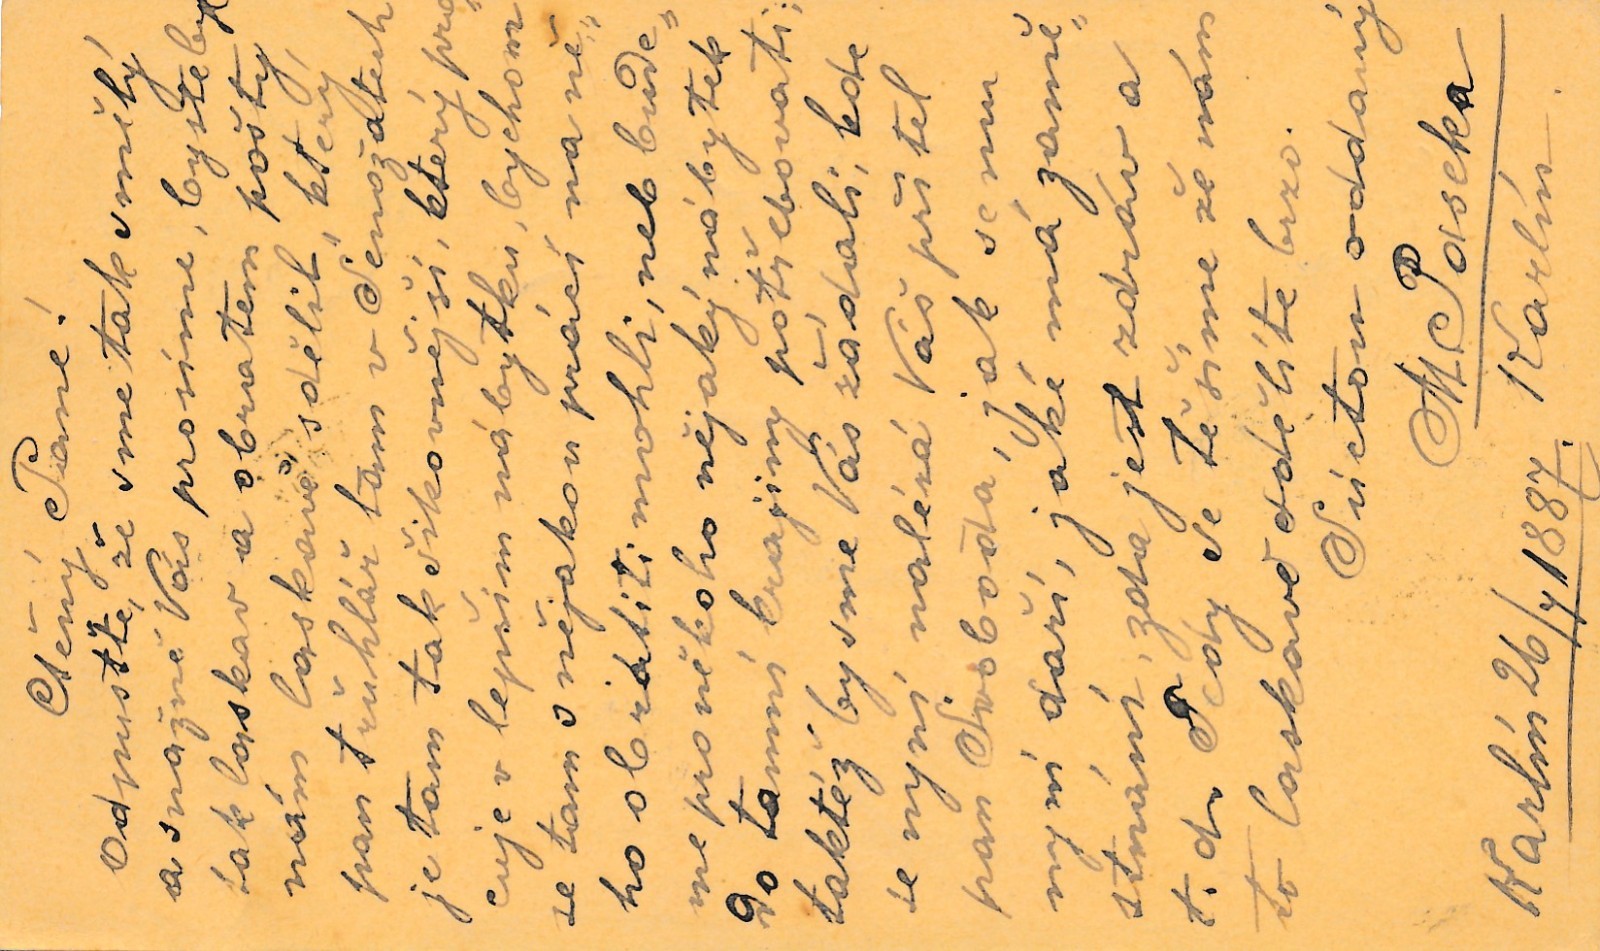 Ctěný Pane!
Odpusťte, že sme tak smělý
a snažně Vás prosíme, byste byl
tak laskav a obratem pošty
nám laskavě sdělil, který
pan truhlář tam v Semožatech
je tam tak šikovnější, který pra„
cuje v lepším nábytku, bychom
se tam s nějakou prácí na ně„
ho obrátiti mohli, neb bude„
me pro někoho nějaký nábytek
do tamní krajiny potřebovati,
taktéž by sme Vás žádali, kde
se nyní nalézá Váš přítel
pan Svoboda, jak se mu
nyní daří, jaké má zamě„
stnání, zda jest zdráv a
t. d. Tedy se těšíme že nám
to laskavě sdělíte brzo.
S úctou oddaný
M Paseka
Karlín 26/7 1887. Karlín